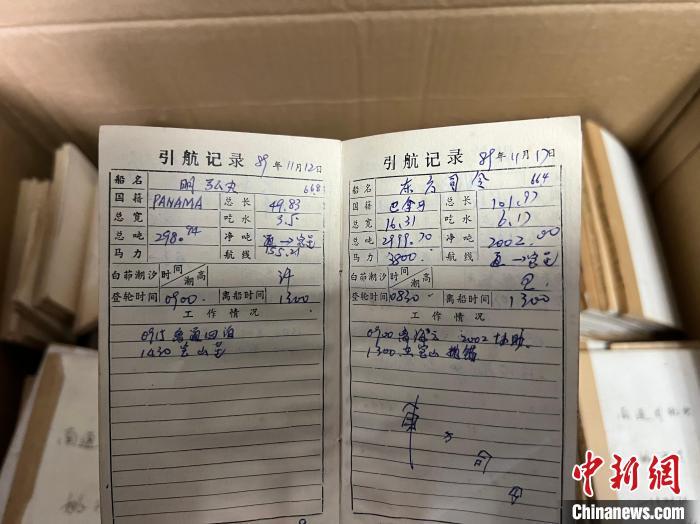 引航记录 89年11月12日
船名 明 668
国籍 PANAMA 总长 49.83
总宽 吃水 3.5
总吨 298.94 净吨 通→宝
马力 航线 155.21
白茆潮汐 时间 潮高
登轮时间 0900. 离船时间 1300
工作情况
0915 南通回泊
1430
引航记录 89年11月17日
船名 东方司令 664
国籍 巴拿马 总长 101.97
总宽 16.31 吃水 6.17
总吨 2999.70 净吨 2002.00
马力 3800. 航线 通→宝
白茆潮汐 时间 潮高
登轮时间 0830 离船时间 1300
工作情况
0900 2002 协助.
1300 宝山 抛锚
東方司令
南通
中新网
Chinanews.com